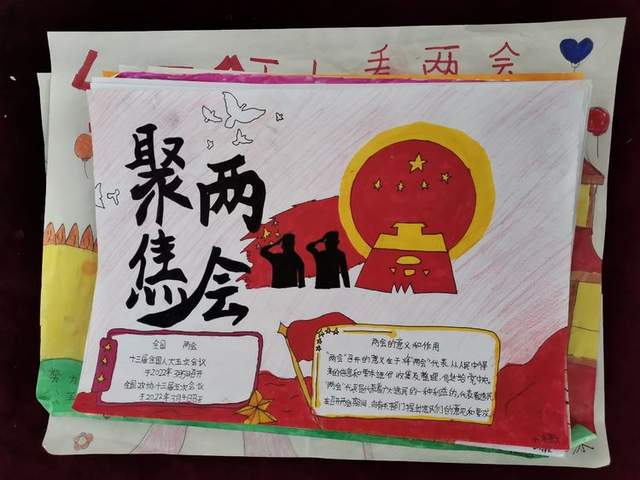 丢两会
聚焦
两会
全国 两会
十三届全国人大五次会议
于2022年3月5日召开
全国政协十三届五次会议
于2022年3月4日召开
两会的意义和作用
"两会"召开的意义在于将"两会"代表从人民中得
来的信息和要求进行收集及整理,传达给党中央,
"两会"代表是代表着广大选民的一种利益的,代表着选民
在召开两会期间,向有关部门提出选民们的意见和要求
努力